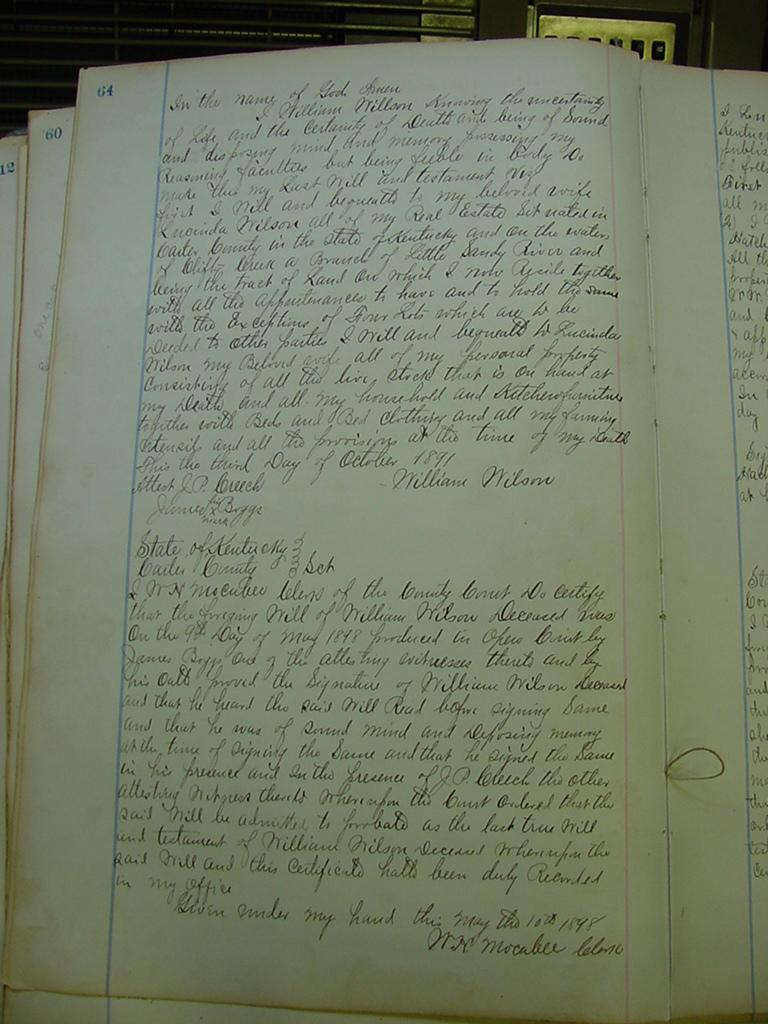 64
60
12
In the name of God Amen
I William Willson Knowing the uncertainty
of Life and the Certainty of Death and being of Sound
and disposing mind and memory possessing my
Reasoning faculties but being feeble in body Do
make this my Last Will and testament Viz
first I Will and bequeath to my beloved wife
Lucinda Wilson all of my Real Estate Situated in
Carter County in the State of Kentucky and on the waters
of Clifty Creek a Branch of Little Sandy River and
being the tract of Land On which I now Reside together
with all the appurtenances to have and to hold the same
with the Exceptions of Four Lots which are to be
Deeded to other parties I Will and bequeath to Lucinda
Wilson my Beloved wife all of my personal property
Consisting of all the live Stock that is on hand at
my Death and all my household and Kitchen furniture
together with Beds and Bed Clothing and all my farming
Utensils and all the provisions at the time of my Death
This the third Day of October 1891
Attest J.P. Creech William Wilson
James his X mark Boggs
State of Kentucky
Carter County Sct
I W H Mocabee Clerk of the County Court Do Certify
that the foregoing Will of William Wilson Deceased was
On the 9th Day of May 1898 produced in Open Court by
James Boggs One of the attesting witnesses thereto and by
his Oath proved the Signature of William Wilson Deceased
and that he heard the said Will Read before signing Same
and that he was of sound mind and Deposing memory
at the time of signing the Same and that he signed the Same
in his presence and in the presence of J.P. Creech the other
attesting Witness thereto Whereupon the Court Ordered that the
said Will be admitted to probate as the last true Will
and testament of William Wilson Deceased Whereupon the
said Will and this Certificate hath been duly Recorded
in my Office
Given under my hand this May the 10th 1898
W H Mocabee Clerk